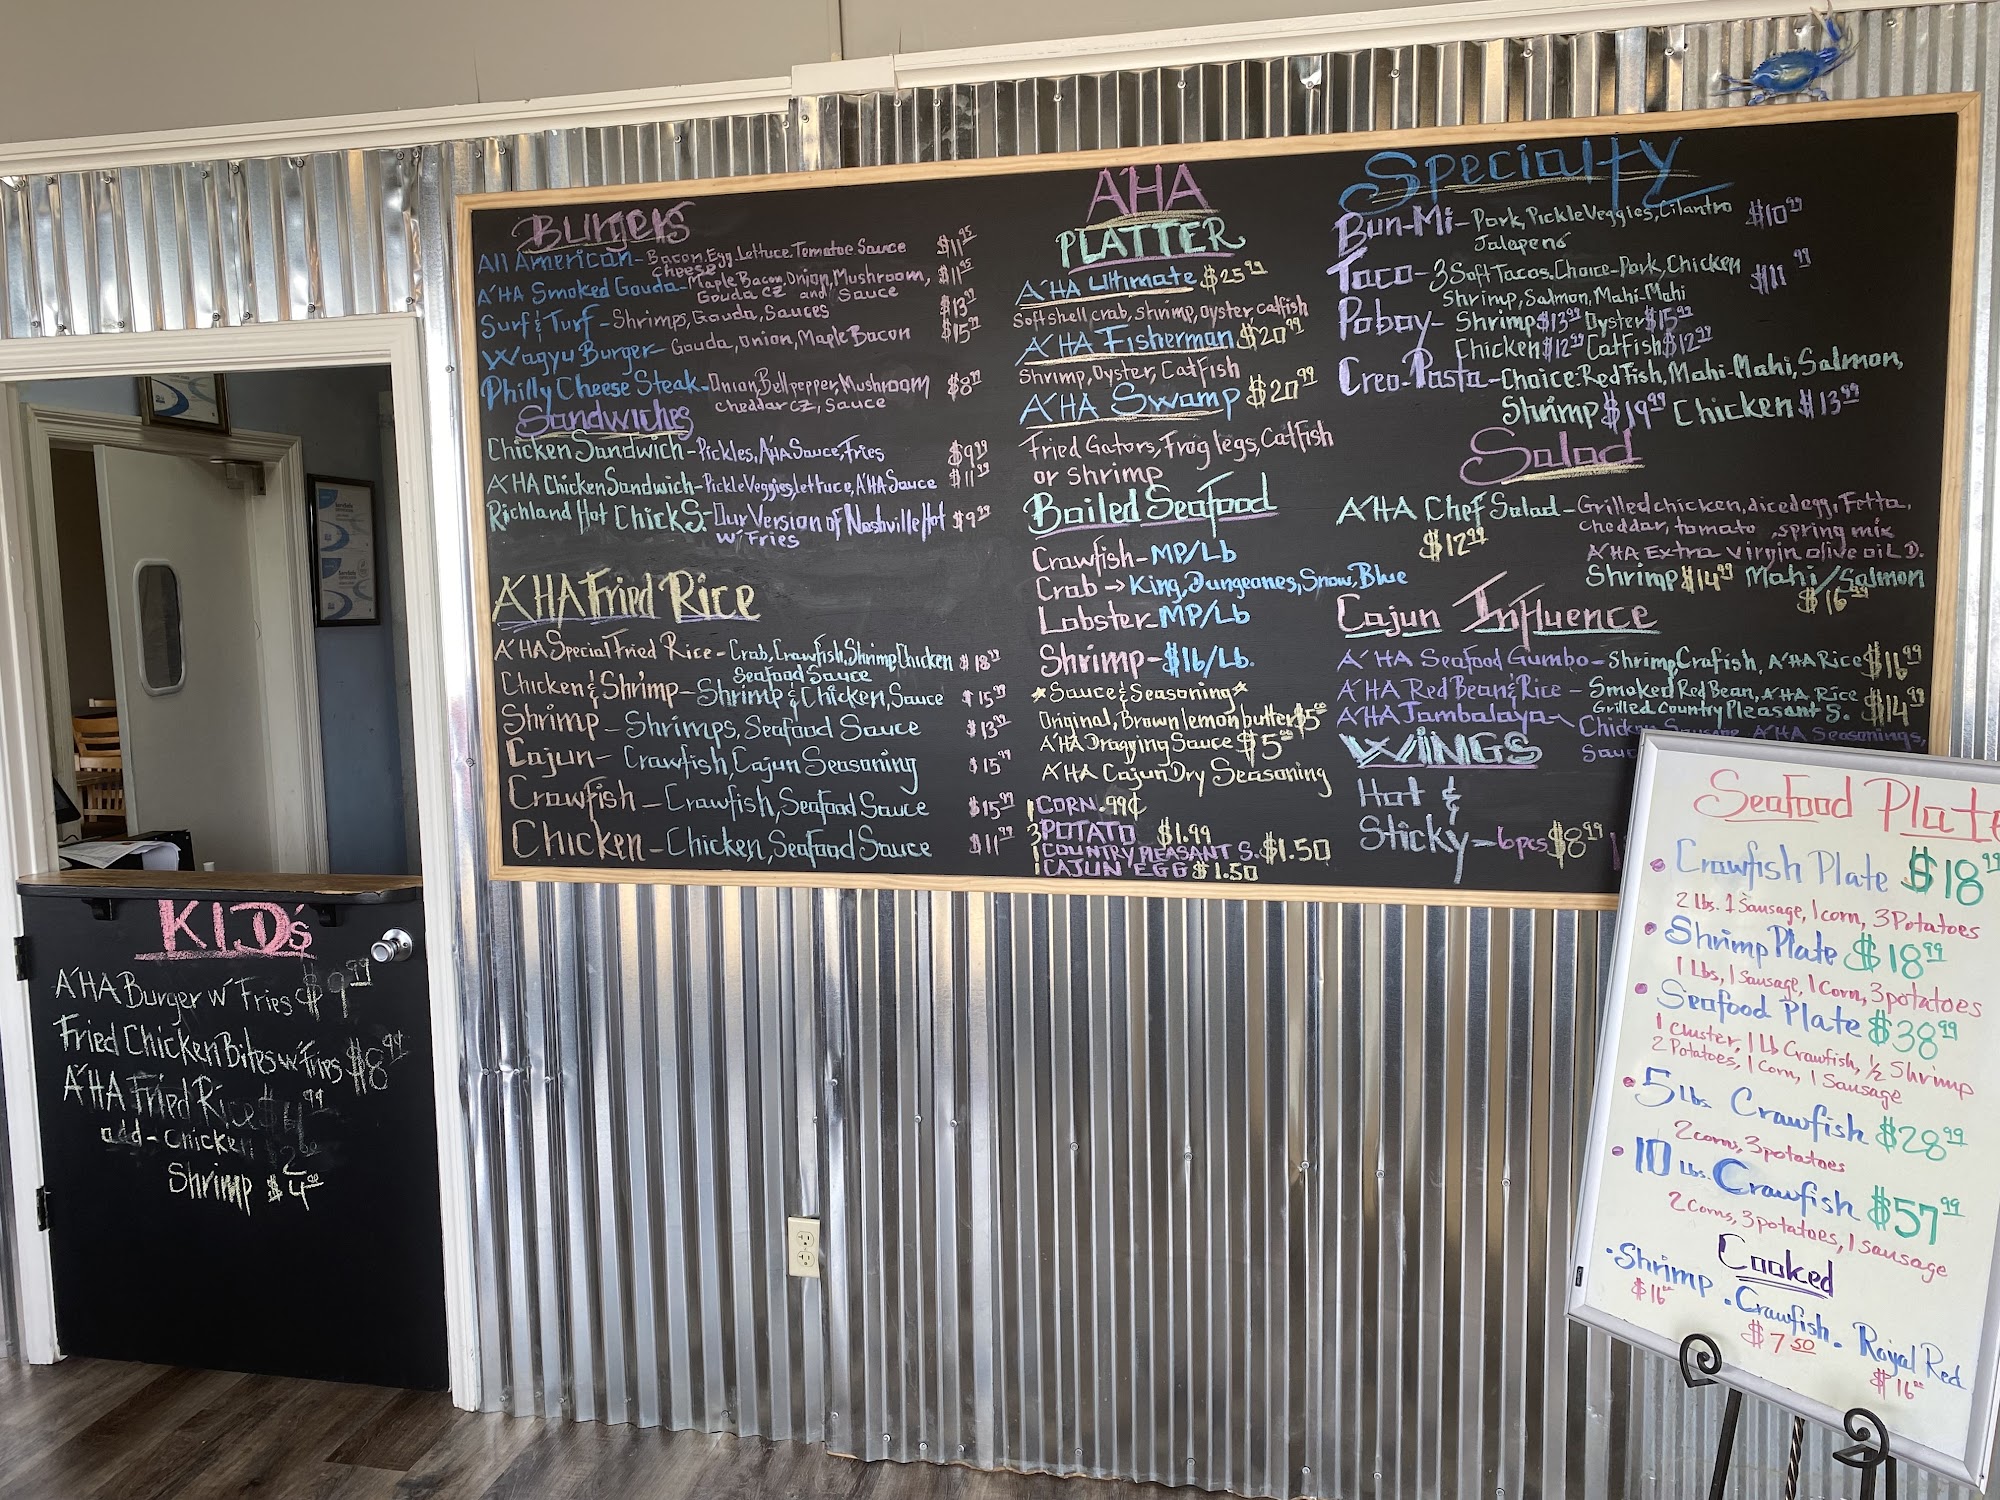 Burgers
All American - Bacon, Egg, Lettuce, Tomatoe Sauce $11.95
Cheese
A'HA Smoked Gouda - Maple Bacon, Onion, Mushroom, $11.95
Gouda CZ and Sauce
Surf & Turf - Shrimps, Gouda, Sauces $13.99
Wagyu Burger - Gouda, Onion, Maple Bacon $15.99
Philly Cheese Steak - Onion, Bellpepper, Mushroom $8.99
cheddar CZ, Sauce
Sandwiches
Chicken Sandwich - Pickles, A'HA Sauce, Fries $9.99
A'HA Chicken Sandwich - Pickle Veggies, lettuce, A'HA Sauce $11.99
Richland Hot Chick S. - Our Version of Nashville Hot $9.99
w/ Fries
A'HA Fried Rice
A'HA Special Fried Rice - Crab, Crawfish, Shrimp, Chicken $18.99
Seafood Sauce
Chicken & Shrimp - Shrimp & Chicken, Sauce $15.99
Shrimp - Shrimps, Seafood Sauce $13.99
Cajun - Crawfish, Cajun Seasoning $15.99
Crawfish - Crawfish, Seafood Sauce $15.99
Chicken - Chicken, Seafood Sauce $11.99
A'HA
PLATTER
A'HA Ultimate $25.99
Softshell crab, shrimp, oyster catfish
A'HA Fisherman $20.99
Shrimp, Oyster, CatFish
A'HA Swamp $20.99
Fried Gators, Frog legs, Catfish
or shrimp
Boiled Seafood
Crawfish - MP/Lb
Crab → King, Dungeones, Snow, Blue
Lobster - MP/Lb
Shrimp - $16/Lb.
*Sauce & Seasoning*
Original, Brown lemon butter $5.00
A'HA Dragging Sauce $5.00
A'HA Cajun Dry Seasoning
1 CORN .99¢
3 POTATO $1.99
1 COUNTRY PLEASANT S. $1.50
1 CAJUN EGG $1.50
Specialty
Bun-Mi - Pork, Pickle Veggies, Cilantro $10.99
Jalapeno
Taco - 3 Soft Tacos, Choice - Pork, Chicken $11.99
Shrimp, Salmon, Mahi-Mahi
Poboy - Shrimp $13.99 Oyster $15.99
Chicken $12.99 Catfish $12.99
Creo-Pasta - Choice: Red Fish, Mahi-Mahi, Salmon,
Shrimp $19.99 Chicken $13.99
Salad
A'HA Chef Salad - Grilled chicken, diced egg, Fetta,
$12.99 cheddar, tomato, spring mix
A'HA Extra Virgin olive oil D.
Shrimp $14.99 Mahi/Salmon
$16.99
Cajun Influence
A'HA Seafood Gumbo - Shrimp, Crafish, A'HA Rice $16.99
A'HA Red Bean & Rice - Smoked Red Bean, A'HA Rice $14.99
Grilled Country Pleasant S.
A'HA Jambalaya - Chicken Sausage, A'HA Seasonings,
WINGS
Hot &
Sticky - 6pcs $8.99
KID's
A'HA Burger w/ Fries $9.99
Fried Chicken Bites w/ Fries $8.99
A'HA Fried Rice
add - chicken
Shrimp $4.00
Seafood Plate
• Crawfish Plate $18.99
2 Lbs. 1 Sausage, 1 corn, 3 Potatoes
• Shrimp Plate $18.99
1 Lbs, 1 Sausage, 1 Corn, 3 potatoes
• Seafood Plate $38.99
1 cluster, 1 Lb Crawfish, 1/2 Shrimp
2 Potatoes, 1 Corn, 1 Sausage
• 5 Lbs. Crawfish $28.99
2 corns, 3 potatoes
• 10 Lbs. Crawfish $57.99
2 Corns, 3 potatoes, 1 Sausage
Cooked
• Shrimp • Crawfish • Royal Red
$16.00 $7.50 $16.00